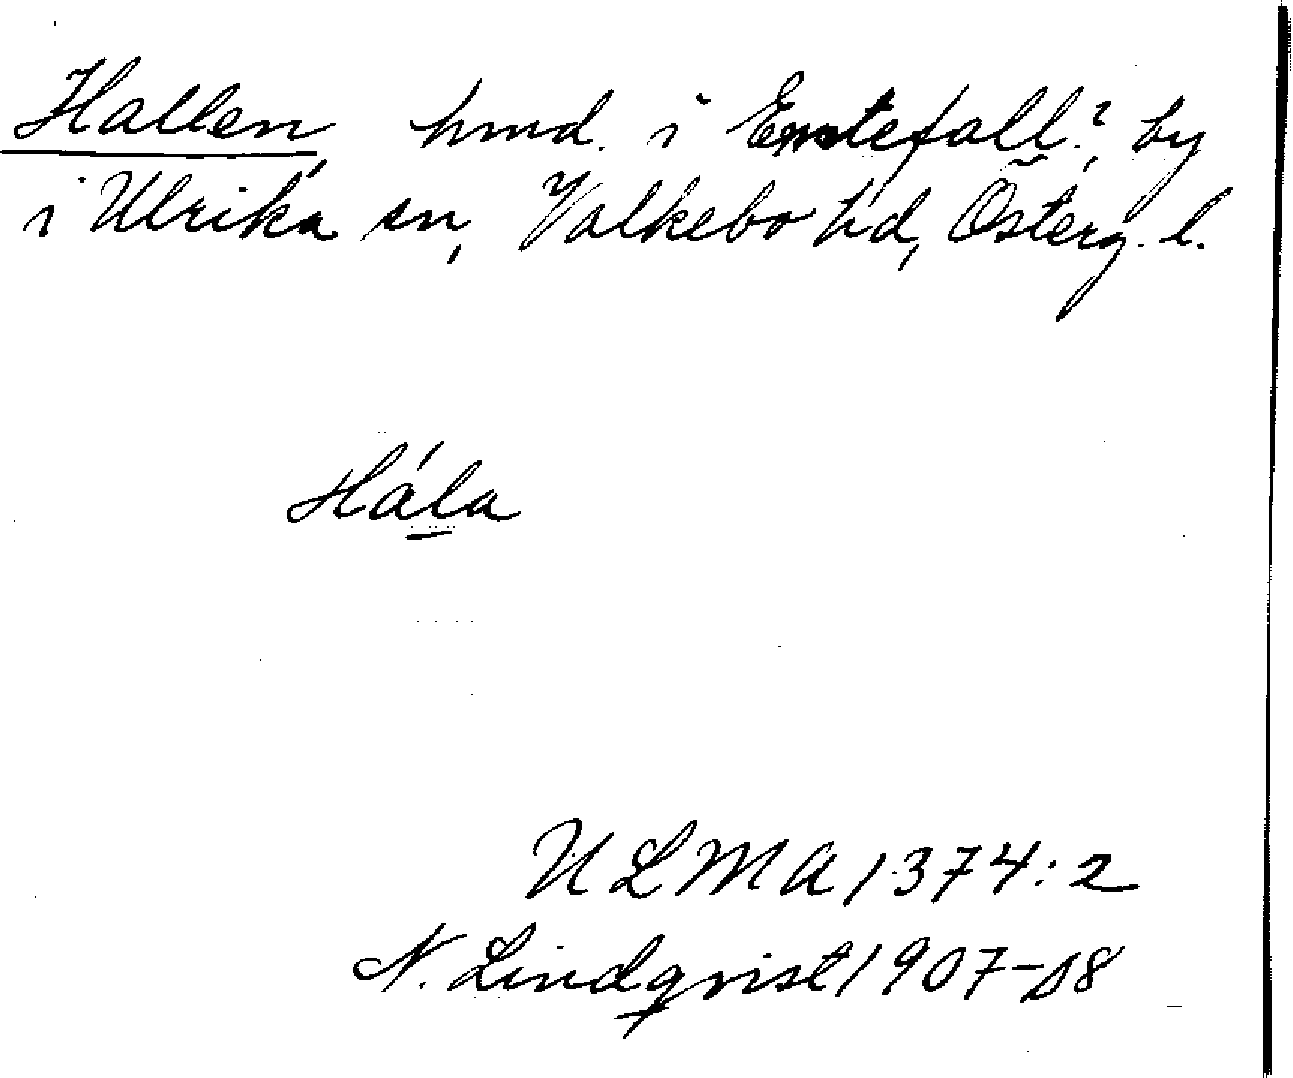 Hallen, hmd. i Emtefall?, by
i Ulrika sn, Valkebo hd, Österg. l.
Hála
ULMA 1374:2
N. Lindqvist 1907-08